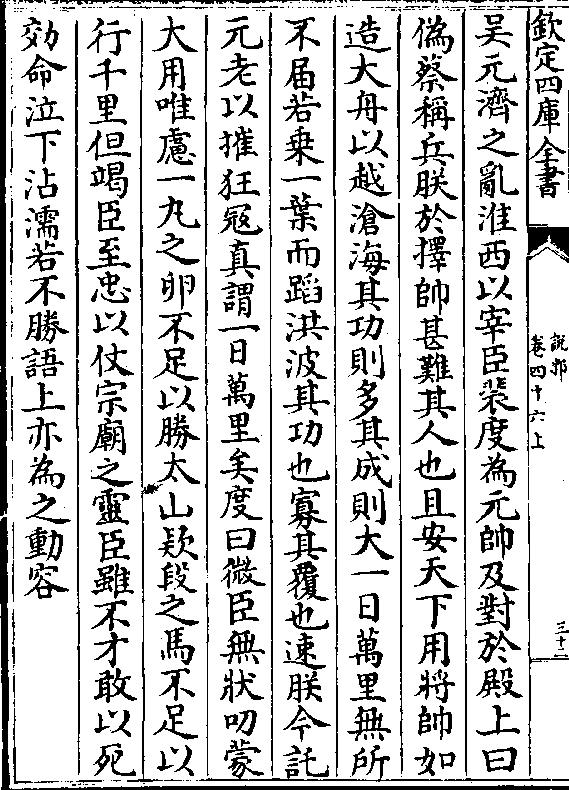 欽定四庫全書
說郛
卷四十六上
三十二
吳元濟之亂淮西以宰臣裴度為元帥及對於殿上曰
偽蔡稱兵朕於擇帥甚難其人也且安天下用將帥如
造大舟以越滄海其功則多其成則大一日萬里無所
不届若乗一葉而蹈洪波其功也寡其覆也速朕今託
元老以摧狂冦真謂一日萬里矣度曰微臣無狀叨蒙
大用唯慮一丸之卵不足以勝太山欵段之馬不足以
行千里但竭臣至忠以仗宗廟之靈臣雖不才敢以死
効命泣下沾濡若不勝語上亦為之動容